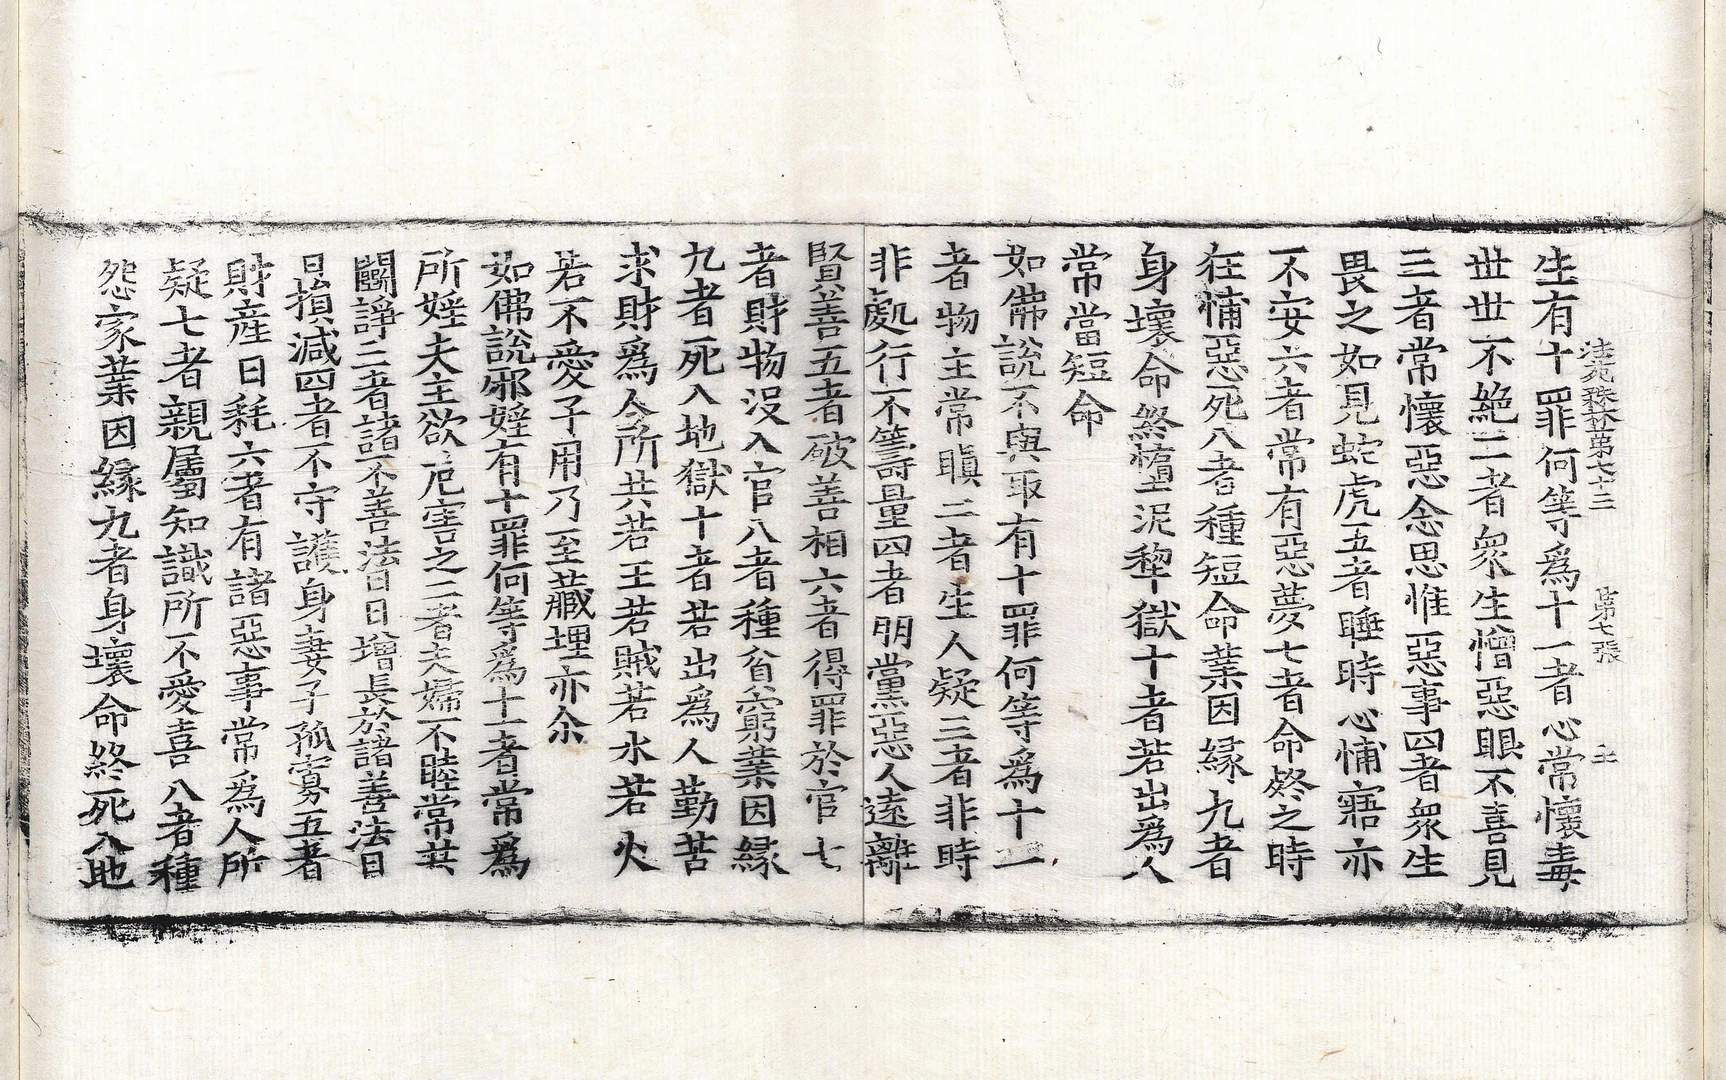 法苑珠林第七十三 第七張 主
生有十罪何等爲十一者心常懷毒
世世不絶二者衆生憎惡眼不喜見
三者常懷惡念思惟惡事四者衆生
畏之如見蛇虎五者睡時心怖寤亦
不安六者常有惡夢七者命終之時
狂怖惡死八者種短命業因縁九者
身壞命終墮泥犂獄十者若出爲人
常當短命
如佛說不與取有十罪何等爲十一
者物主常瞋二者生人疑三者非時
非處行不籌量四者朋黨惡人遠離
賢善五者破善相六者得罪於官七
者財物没入官八者種貧窮業因縁
九者死入地獄十者若出爲人勤苦
求財爲人所共若王若賊若水若火
若不愛子用乃至藏埋亦尒
如佛說邪婬有十罪何等爲十一者常爲
所婬夫主欲危害之二者夫婦不睦常共
鬭諍三者諸不善法日日增長於諸善法日
日損減四者不守護身妻子孤寡五者
財産日耗六者有諸惡事常爲人所
疑七者親屬知識所不愛喜八者種
怨家業因縁九者身壞命終死入地